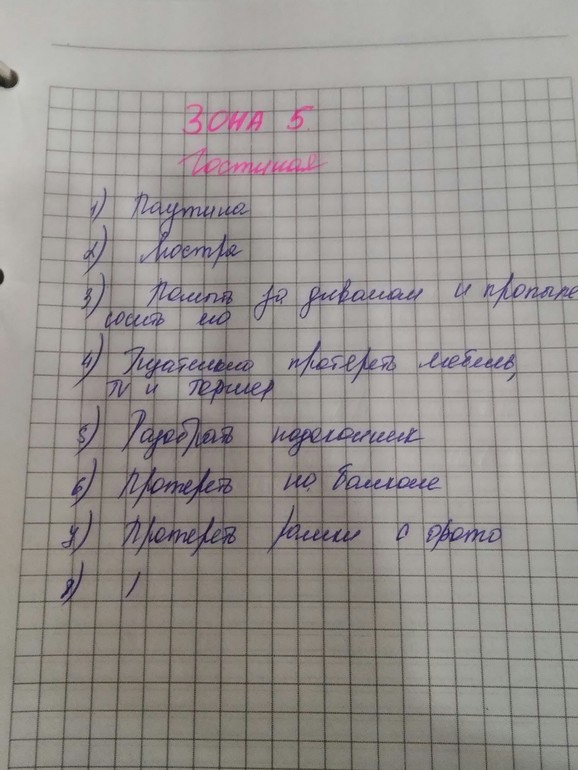 ЗОНА 5.
Гостиная
1) Паутина
2) Люстра
3) Помыть за диваном и пропыле
сосить его
4) Тщательно протереть мебель,
TV и торшер
5) Разобрать подоконник
6) Протереть на балконе
7) Протереть рамки с фото
8)